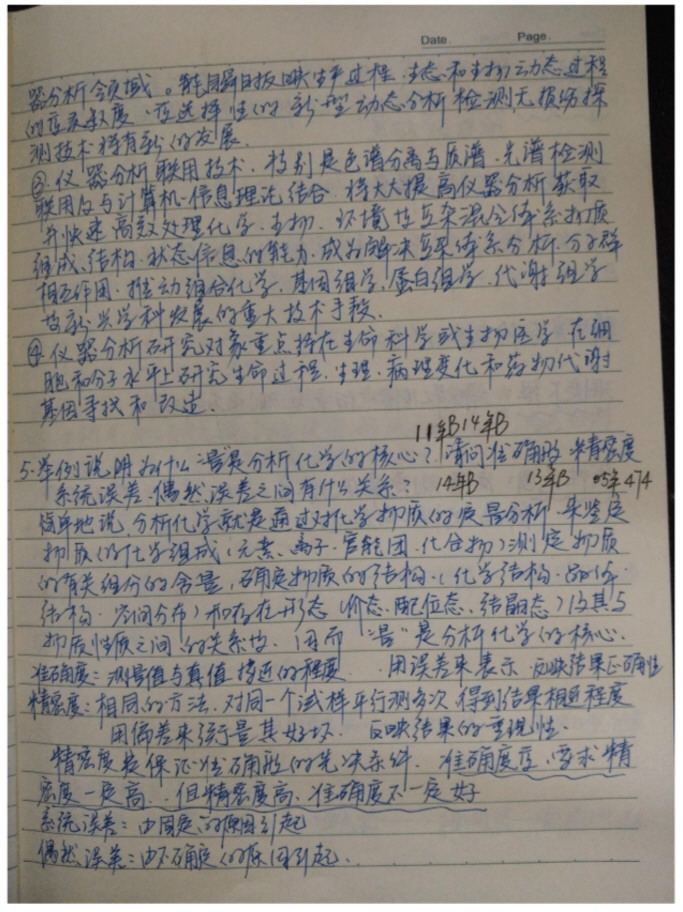 Date. Page.
器分析领域。能瞬目反映生产过程、生态和生物动态过程
的高灵敏度、高选择性的新型动态分析检测无损伤探
测技术将有新的发展.
③ 仪器分析联用技术.特别是色谱分离与质谱.光谱检测
联用及与计算机.信息理论结合.将大大提高仪器分析获取
并快速高效处理化学.生物.环境等复杂混合体系物质
组成、结构、状态信息的能力.成为解决复杂体系分析.分子群
相互作用.推动组合化学.基因组学.蛋白组学.代谢组学
等新兴学科发展的重大技术手段.
④ 仪器分析研究对象重点将在生命科学或生物医学 在细
胞和分子水平上研究生命过程.生理.病理变化和药物代谢
基因寻找和改造.
11年B14年B
5.举例说明为什么"量"是分析化学的核心?请问准确度 精密度
系统误差.偶然误差之间有什么关系? 14年B 13年B 05年474
简单地说,分析化学就是通过对化学物质的定量分析 来鉴定
物质的化学组成(元素、离子.官能团.化合物)测定物质
的有关组分的含量,确定物质的结构.(化学结构.晶体
结构.空间分布)和存在形态(价态.配位态.结晶态)及其与
物质性质之间的关系等. 因而 "量"是分析化学的核心.
准确度:测量值与真值接近的程度. 用误差来表示 反映结果正确性
精密度:相同的方法.对同一个试样平行测多次 得到结果相近程度
用偏差来衡量其好坏. 反映结果的重现性.
精密度是保证准确度的先决条件. 准确度高,要求精
密度一定高..但精密度高、准确度不一定好
系统误差:由固定的原因引起
偶然误差:由不确定的原因引起.